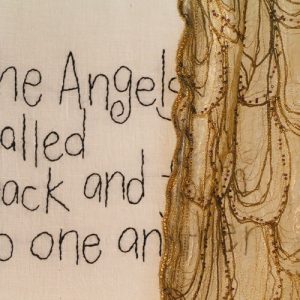 he Angels
alled
ack and
o one